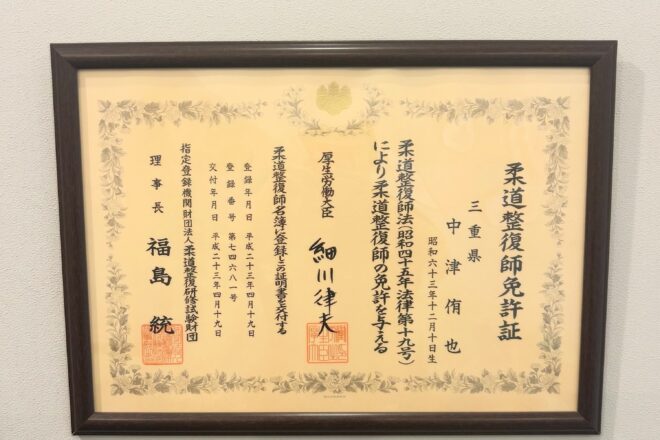 柔道整復師免許証
三重県
中津侑也
昭和六十三年十二月十日生
柔道整復師法(昭和四十五年法律第十九号)
により柔道整復師の免許を与える
厚生労働大臣 細川律夫
柔道整復師名簿に登録しこの証明書を交付する
登録年月日 平成二十三年四月十九日
登録番号 第七四六八一号
交付年月日 平成二十三年四月十九日
指定登録機関財団法人柔道整復研修試験財団
理事長 福島統